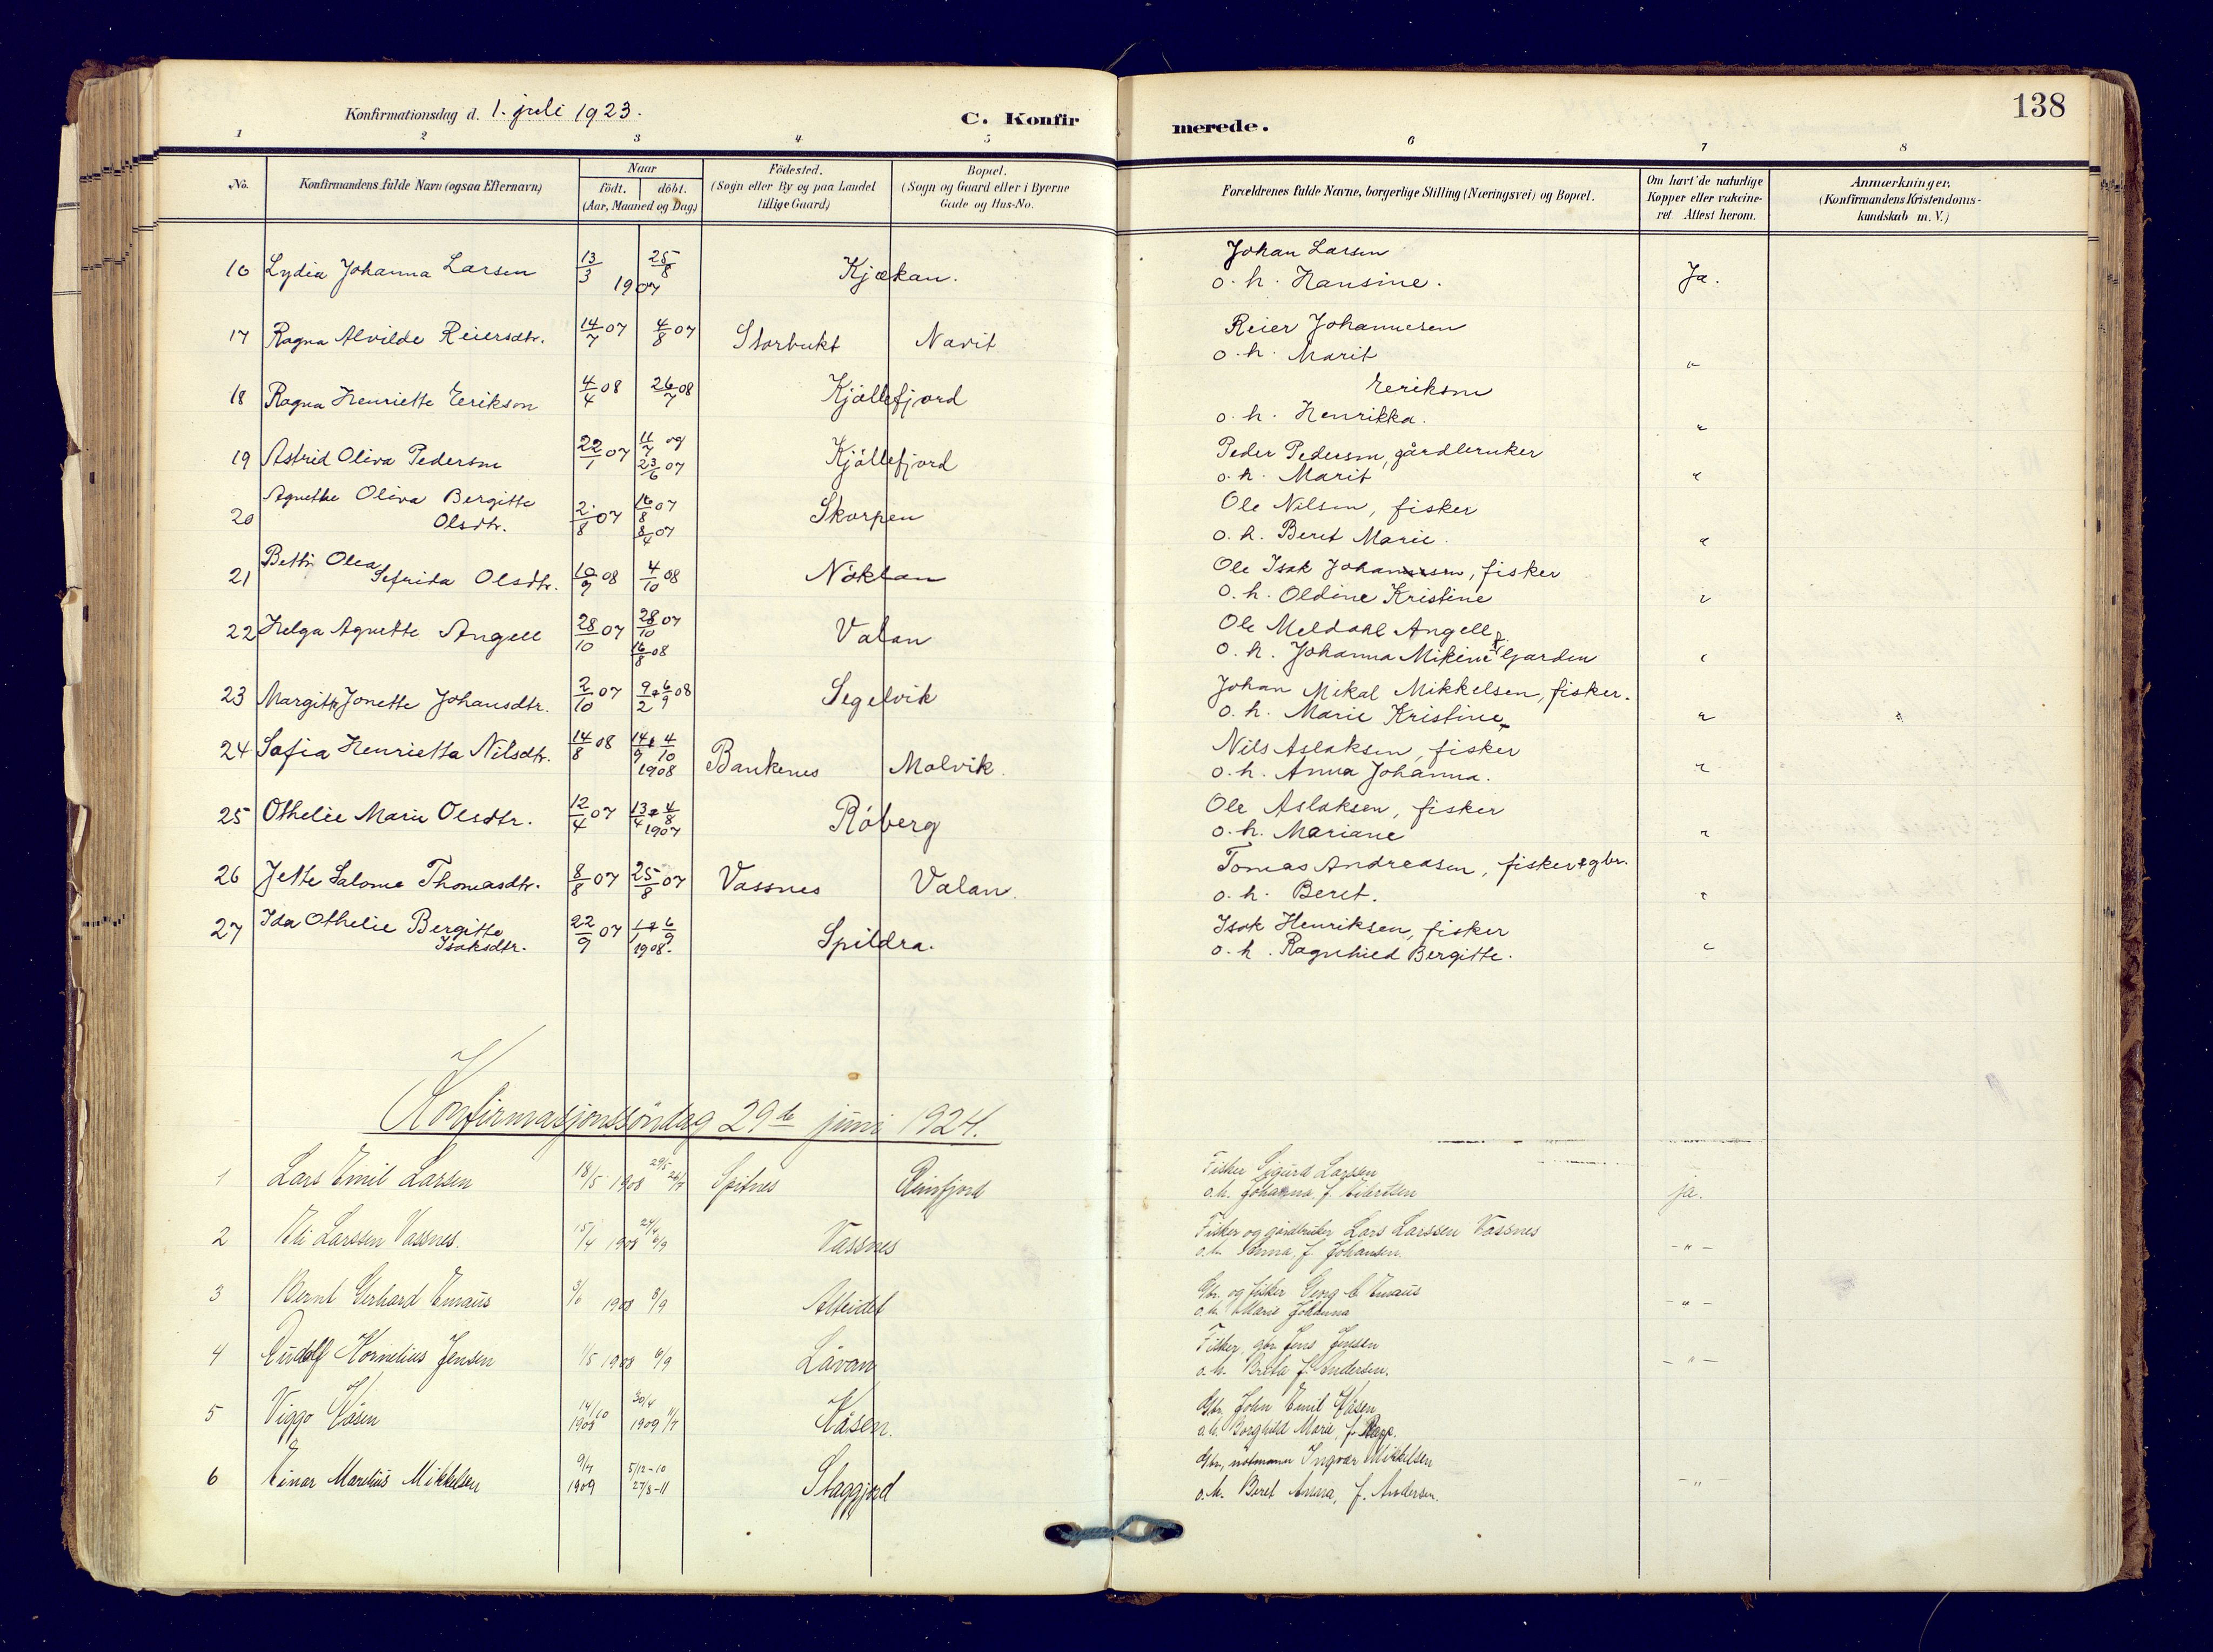 Konfirmationsdag d. 1. juli 1923.
C. Konfirmerede.
138
1 2 3 4 5 6 7 8
No.
Konfirmandens fulde Navn (ogsaa Efternavn)
Naar
födt. döbt.
(Aar, Maaned og Dag)
Födested.
(Sogn eller By og paa Landet
tillige Gaard)
Bopæl.
(Sogn og Gaard eller i Byerne
Gade og Hus-No.
Forældrenes fulde Navne, borgerlige Stilling (Næringsvei) og Bopæl.
Om havt de naturlige
Kopper eller vakcine-
ret. Attest herom.
Anmærkninger.
(Konfirmandens Kristendoms-
kundskab m. V.)
16 Lydia Johanna Larsen 13/3 25/8 1907 Kjækan. Johan Larsen
o. h. Hansine. Ja.
17 Ragna Alvilde Reiersdtr. 14/7 07 4/8 07 Storbukt Navit Reier Johannesen
o. h. Marit "
18 Ragna Henriette Eerikson 4/4 08 26/7 08 Kjøllefjord Eerikson
o. h. Henrikka. "
19 Astrid Oliva Pedersen 22/1 07 11/7 og 23/6 07 Kjøllefjord Peder Pedersen, gårdbruker
o. h. Marit "
20 Agnethe Oliva Bergitte
Olsdtr. 2/8 07 16/8 07 8/4 07 Skorpen Ole Nilsen, fisker
o. h. Beret Marie. "
21 Olea
Sefrida Olsdtr. 10/9 08 4/10 08 Nöklan Ole Isak Johannesen, fisker
o. h. Oldine Kristine "
22 Helga Agnette Angell 28/10 07 28/10 07 16/8 08 Valan Ole Meldahl Angell
o. h. Johanna Mikine Garden "
23 Margith Jonette Johansdtr. 2/10 07 9/2 + 6/9 08 Segelvik Johan Mikal Mikkelsen, fisker.
o. h. Marie Kristine "
24 Sofia Henrietta Nilsdtr. 14/8 08 14/9 + 4/10 1908 Bankenes Malvik. Nils Aslaksen, fisker
o. h. Anna Johanna. "
25 Othelie Marie Olsdtr. 12/4 07 13/4 + 4/8 1907 Röberg Ole Aslaksen, fisker
o. h. Mariane "
26 Jette Salome Thomasdtr. 8/8 07 25/8 07 Vassnes Valan. Tomas Andreasen, fisker + gbr.
o. h. Beret. "
27 Ida Othelie Bergitte
Isaksdtr. 22/9 07 1/1 + 6/9 1908. Spildra. Isak Henriksen, fisker
o. h. Ragnhied Bergitte. "
Konfirmasjonssöndag 29de juni 1924.
1 Lars Emil Larsen 18/5 1908 29/5 26/7 Spitnes Fisker Sigurd Larsen
o. h. Johanna, f. Eilertsen ja.
2 Eli Larssen Vassnes. 15/4 1908 24/4 6/9 Vassnes Fisker og gårdbruker Lars Larssen Vassnes
o. h. Anna, f. Johansen. - " -
3 Bernt Gerhard Emaus 3/6 1908 6/9 Alteidet Gbr. og fisker Emaus
o. h. Marie Johanna - " -
4 Rudolf Kornelius Jensen 1/5 1908 6/9 Låvan Fisker, gbr. Jens Jenssen
o. h. Berta f. Andersen. - " -
5 Viggo Kåsen 14/10 1908 30/4 1909 11/7 Kåsen. Gbr. John Emil Kåsen
o. h. Borghild Marie, f. Rapp.
6 Einar Marelius Mikkelsen 9/4 1909 5/12-10 27/8-11 Staggjord Gbr., nötmann Ingvar Mikkelsen
o. h. Beret Anna, f. Andersen. - " -